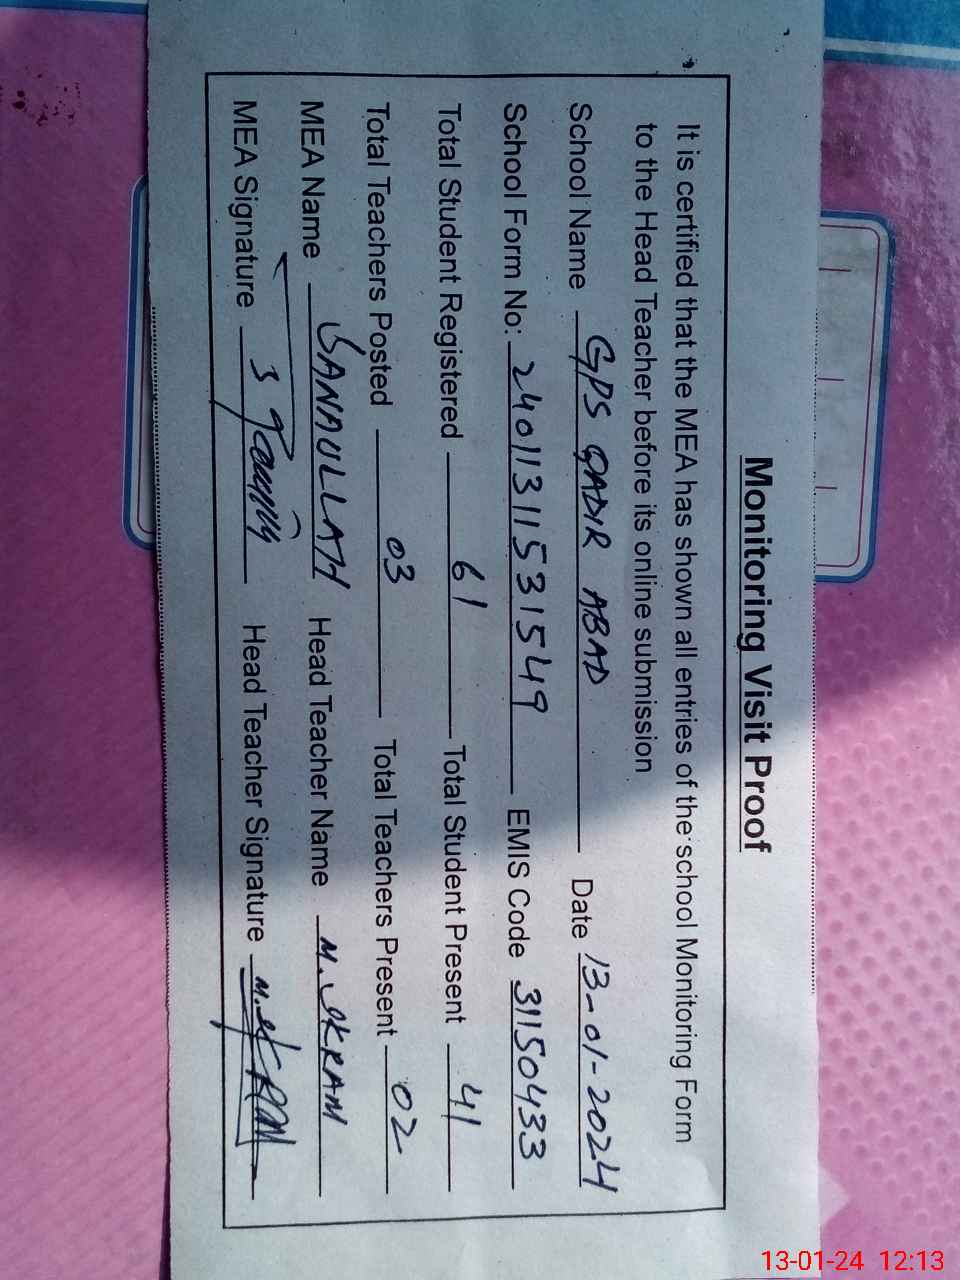 Monitoring Visit Proof
It is certified that the MEA has shown all entries of the school Monitoring Form
to the Head Teacher before its online submission
School Name GPS QADIR ABAD Date 13-01-2024
School Form No: 24011311531549 EMIS Code 31150433
Total Student Registered 61 Total Student Present 41
Total Teachers Posted 03 Total Teachers Present 02
MEA Name SANAULLAH Head Teacher Name M. IKRAM
MEA Signature Head Teacher Signature M. IKRAM
13-01-24 12:13